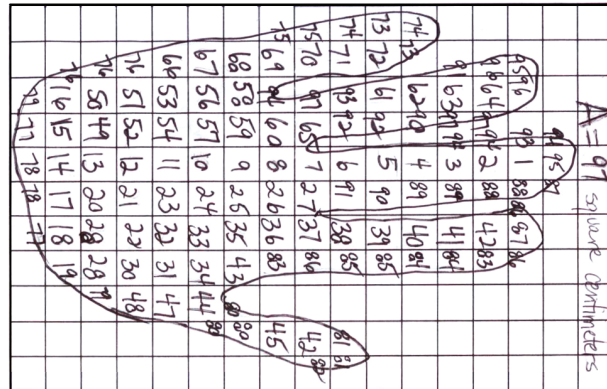 A=97 square centimeters
95
95 96 93 1 88 87 86
64 94 2 88 42 83
91 63 3 89 41 84
74 73 62 90 4 89 40 84
73 72 61 92 5 90 39 85
74 71 93 92 6 91 38 85 81 81
75 70 97 65 7 27 37 86 42 80
75 69 60 8 26 36 85 45
68 58 59 9 25 35 43 80 80
67 56 57 10 24 33 34 44 80
66 53 54 11 23 32 31 47
76 51 52 12 21 22 30 48
76 50 49 13 20 28
76 16 15 14 17 18 19
77 77 78 78 77